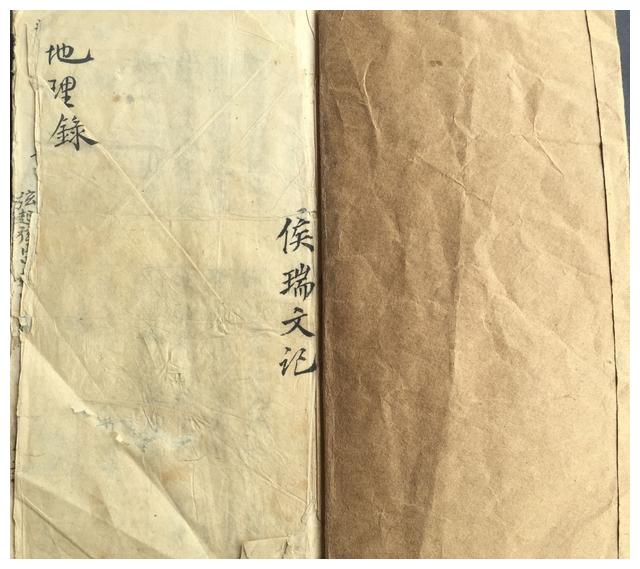 地理錄
侯瑞文记